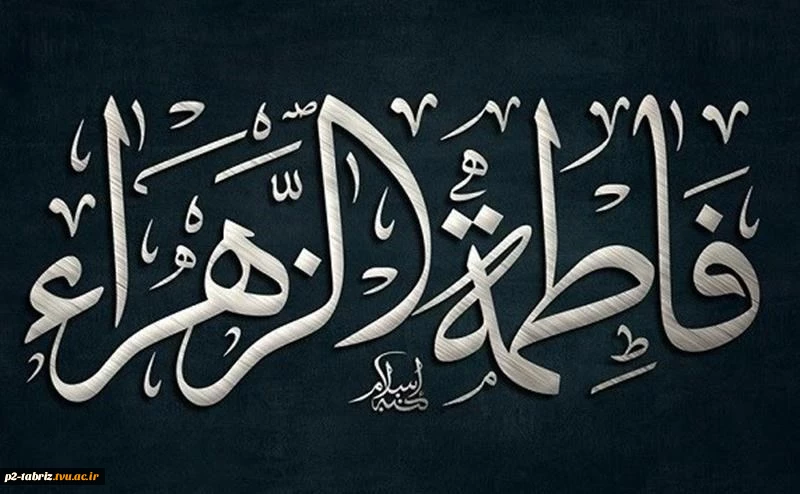 فَاطِمَةُ الزَّهْرَاء
کتیبه اسلام
p2-tabriz.tvu.ac.ir